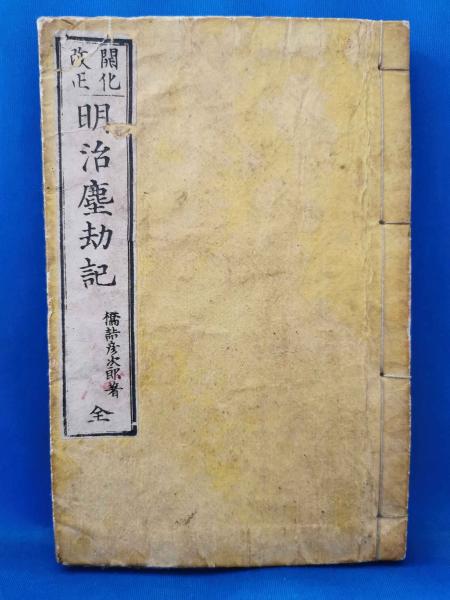 開化
改正
明治塵劫記
橋詰彦次郎著
全